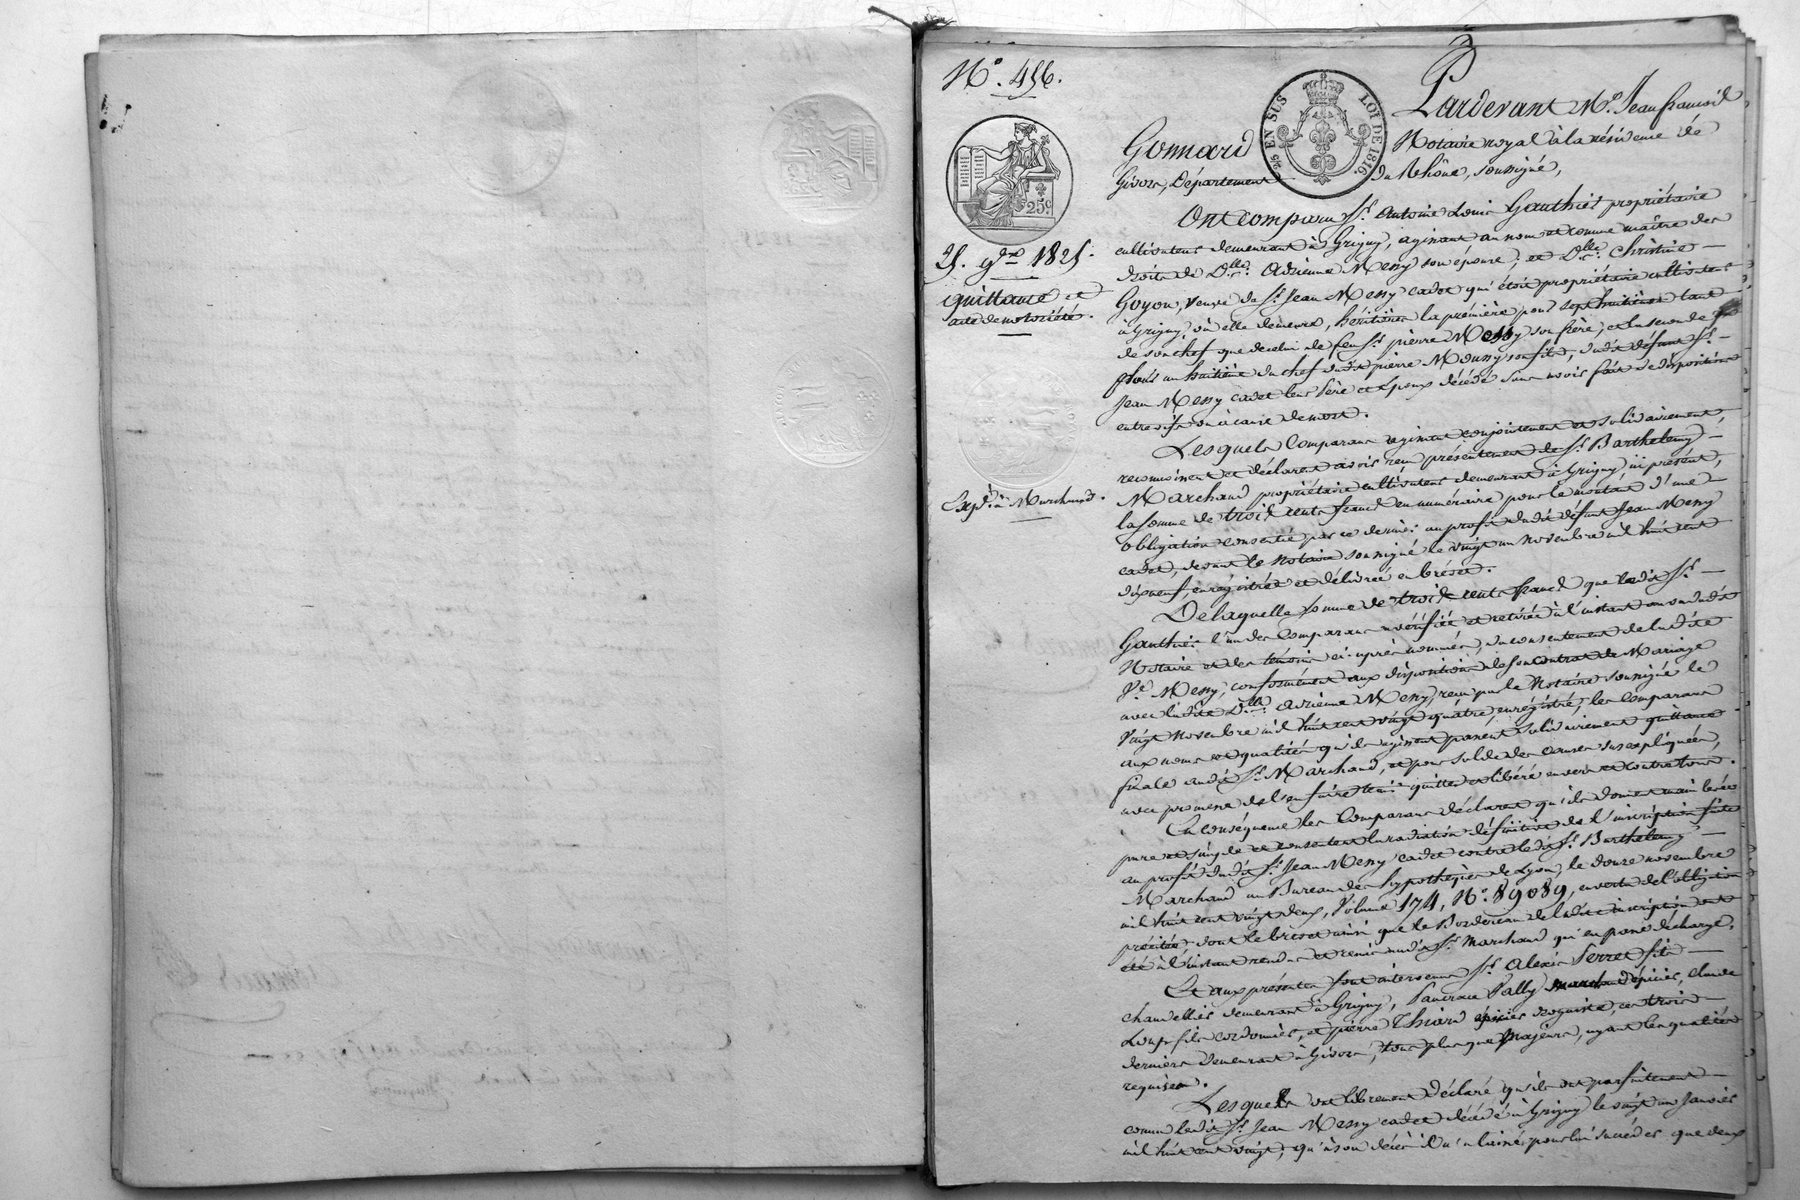 N.º 456.
Pardevant Mᵉ. Jean françois
Gonnard Notaire royal à la résidence de
Givors, Département du Rhône, soussigné,
25 EN SUS LOI DE 1816.
25.c
25. 9.bre 1825.
quittance et
acte de notoriété.
Ont comparu Sr. Antoine Louis Gauthier propriétaire
cultivateur demeurant à Grigny, agissant au nom et comme maître des
droits de D.lle Adrienne Messy son épouse; et D.lle Christine
Goyon, veuve de Sr. Jean Messy cadet qui étoit propriétaire cultivateur
à Grigny, où elle demeure, héritières la première pour sept huitièmes tant
de son chef que de celui de feu Sr. pierre Messy son frère; et la seconde
pour un huitième du chef dudit pierre Messy son fils, dudit défunt Sr.
Jean Messy cadet leur père et époux décédé sans avoir fait de disposition
entre vifs ou à cause de mort.
Lesquels Comparans agissant conjointement et solidairement,
reconnoissent et déclarent avoir reçu présentement de Sr. Barthelemy
Expn. à Marchand.
Marchand propriétaire cultivateur demeurant à Grigny, ici présent,
la somme de trois cents francs en numéraire pour le montant d'une
obligation consentie par ce dernier au profit dudit défunt Jean Messy
cadet, devant le Notaire soussigné le vingt un novembre mil huit cent
dixneuf, enregistrée et délivrée en brevet.
De laquelle somme de trois cents francs que ledit Sr.
Gauthier l'un des Comparans a vérifiée et retirée à l'instant au vu dudit
Notaire et des témoins ci-après nommés, du consentement de ladite
Ve. Messy, conformément aux dispositions de son contrat de Mariage
avec ladite D.lle Adrienne Messy, reçu par le Notaire soussigné le
vingt novembre mil huit cent vingt quatre, enregistré, les Comparans
aux noms et qualités qu'ils agissent passent solidairement quittance
finale audit Sr. Marchand, et pour solde des causes sus expliquées,
avec promesse de l'en faire tenir quitte et libéré envers et contre tous.
En conséquence les Comparans déclarent qu'ils donnent main levée
pure et simple et consentent la radiation définitive de l'inscription faite
au profit dudit Sr. Jean Messy cadet contre ledit Sr. Barthelemy
Marchand au Bureau des hypothèques de Lyon, le douze novembre
mil huit cent vingt deux, Volume 174, N.º 89089, en vertu de l'obligation
précitée, dont le brevet ainsi que le Bordereau de ladite inscription ont
été à l'instant rendus et remis audit Sr. Marchand qui en passe décharge.
Et aux présentes sont intervenus Sr. Alexis Perret fils
chandellier demeurant à Grigny, Pancrace Pally marchand épicier, Claude
Loup fils cordonnier, et pierre Thiard épicier, ces trois
derniers demeurant à Givors, tous plus que Majeurs, ayant les qualités
requises.
Lesquels ont librement déclaré qu'ils ont parfaitement
connu ledit Sr. Jean Messy cadet décédé à Grigny le vingt un Janvier
mil huit cent vingt, qu'à son décès il n'a laissé pour lui succéder que deux